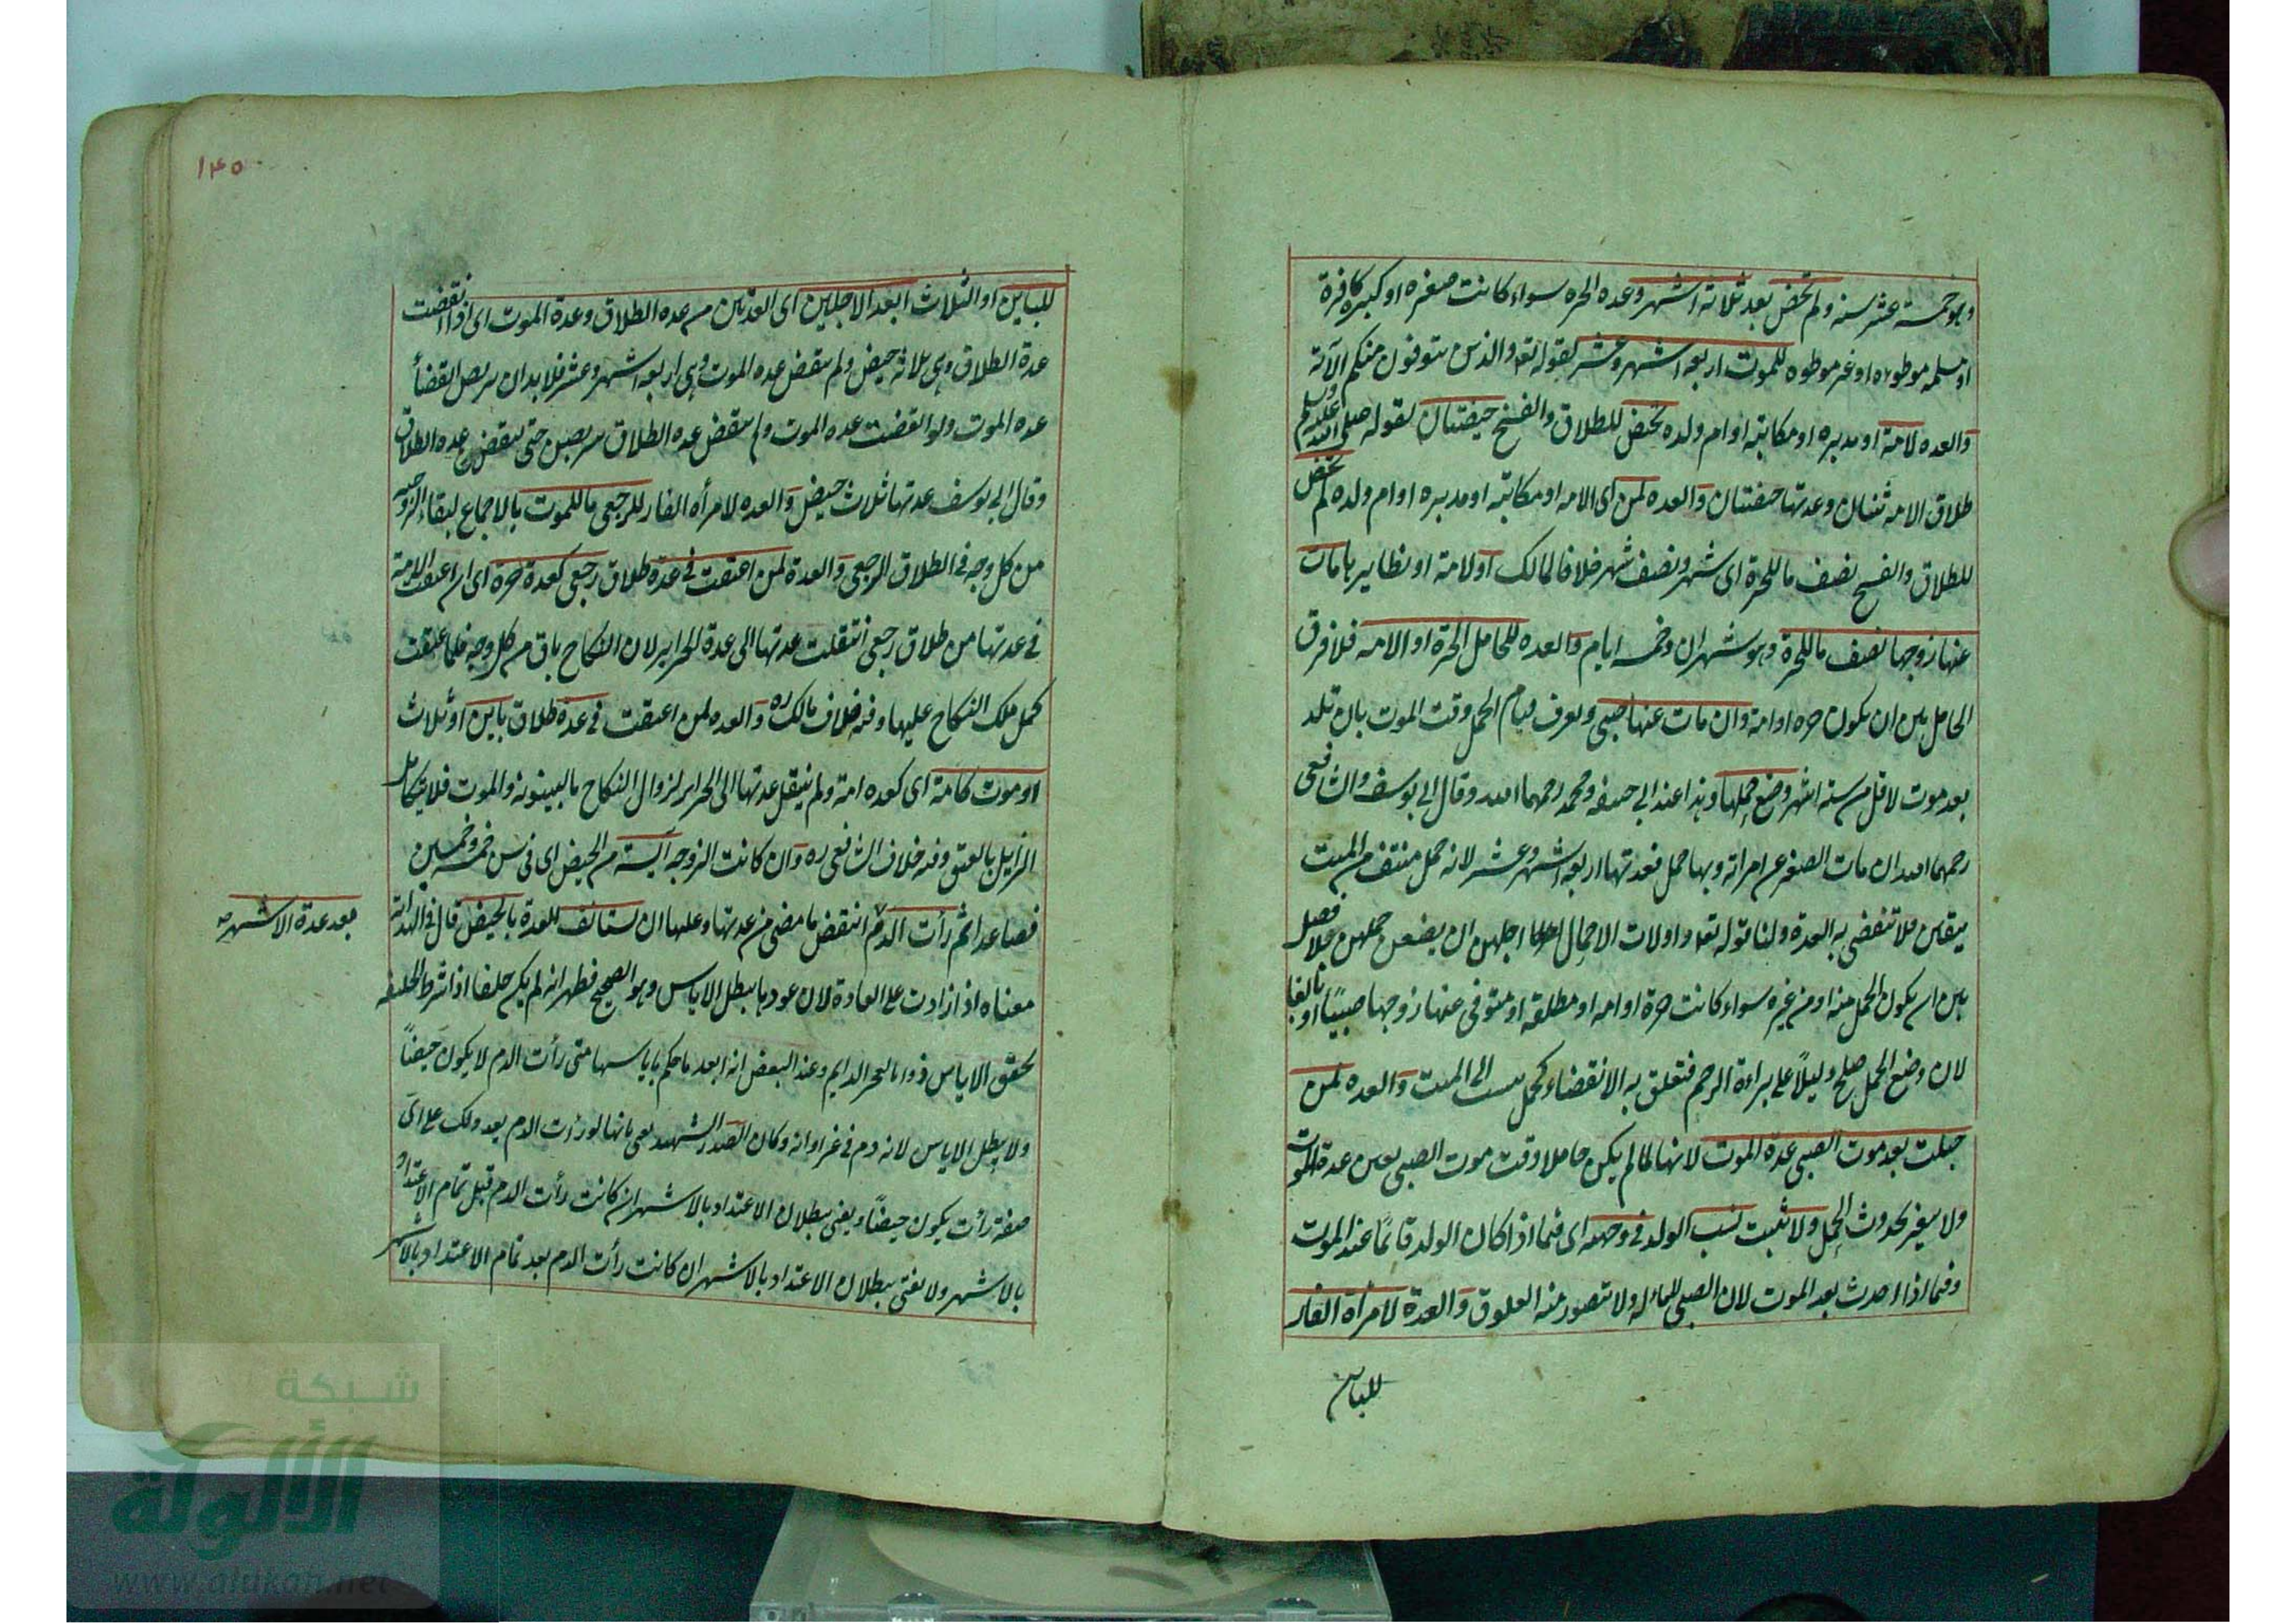 وهو خمسة عشر سنة ولم تحض بعد ثلاثة اشهر وعده الحره سواء كانت صغيره او كبيره كافرة
او مسلمه موطوءه او غير موطوه للموت اربعه اشهر وعشر لقوله تعه والذين يتوفون منكم الآية
والعده لامة او مدبره او مكاتبه او ام ولده تحيض للطلاق والفسخ حيضتان لقوله صلى الله عليه وسلم
طلاق الامه ثنتان وعدتها حيضتان والعده لمن اى الامه او مكاتبه او مدبره او ام ولده لم تحض
للطلاق والفسخ نصف ما للحرة اى شهر ونصف شهر خلافا لمالك او لامة او نظايرها مات
عنها زوجها نصف ما للحرة وهو شهران وخمسه ايام والعده للحامل الحرة او الامه فلا فرق
الحامل بين ان يكون حره او امة وان مات عنها صبى ويعرف قيام الحمل وقت الموت بان تلد
بعد موت لاقل من ستة اشهر وضع حملها وهذا عند ابى حنيفه ومحمد رحمهما الله وقال ابى يوسف والشافعى
رحمهما الله ان مات الصغير عن امراته وبها حمل فعدتها اربعه اشهر وعشر لانه حمل منتف من الميت
بيقين فلا تنقضى به العدة ولنا قوله تعه واولات الاحمال اجلهن ان يضعن حملهن بلا فصل
بين ان يكون الحمل منه او من غيره سواء كانت حرة او امه او مطلقه او متوفى عنها زوجها صبيًا او بالغا
لان وضع الحمل صلح دليلاً على براءة الرحم فتعلق به الانقضاء كحمل الى الميت والعده لمن
حبلت بعد موت الصبى عدة الموت لانها لما لم يكن حاملا وقت موت الصبى تعين عدة الموت
ولا يتغير بحدوث الحمل ولا يثبت نسب الولد فى وجهه اى فيما اذا كان الولد قائمًا عند الموت
وفيما اذا احدث بعد الموت لان الصبى لا ماء له ولا يتصور منه العلوق والعدة لامراة الفار
للباين
١٤٥
للباين او الثلاث ابعد الاجلين اى العدتين من عده الطلاق وعدة الموت اى اذا انقضت
عدة الطلاق وهى ثلاثه حيض ولم ينقض عده الموت وهى اربعه اشهر وعشر فلا بد ان يتربص انقضأ
عده الموت ولو انقضت عده الموت ولم ينقض عده الطلاق يتربصن حتى ينقض عده الطلاق
وقال ابى يوسف عدتها ثلاث حيض والعده لامرأه الفار للرجعى ما للموت بالاجماع لبقاء الزوجيه
من كل وجه فى الطلاق الرجعى والعدة لمن اعتقت فى عدة طلاق رجعى كعدة حره اى ان اعتقت الامة
فى عدتها من طلاق رجعى انتقلت عدتها الى عدة الحراير لان النكاح باق من كل وجه فلما عتقت
كمل ملك النكاح عليها وفيه خلاف مالك ره والعده لمن اعتقت فى عدة طلاق باين او ثلاث
او موت كامة اى كعده امة ولم ينتقل عدتها الى الحراير لزوال النكاح بالبينونه والموت فلا يتكامل
الزايل بالعتق وفيه خلاف الشافعى ره وان كانت الزوجه آيسة من الحيض اى فى سن خمسه وخمسين
فصاعدا ثم رأت الدم انتقض ما مضى من عدتها وعليها ان يستانف للعدة بالحيض قال فى الهدايه
بعد عدة الاشهر صح
معناه اذا زادت على العادة لان عودها يبطل الاياس وهو الصحيح فظهر انه لم يكن خلفا اذ شرط الخلفيه
تحقق الاياس ذوا بالعجز الدايم وعند البعض انه ابعد ما حكم باياسها متى رأت الدم لا يكون حيضاً
ولا يبطل الاياس لانه دم فى غير اوانه وكان الصدر الشهيد يفتى بانها لو رأت الدم بعد ذلك على اى
صفة رأت يكون حيضاً ويفتى ببطلان الاعتداد بالاشهر ان كانت رأت الدم قبل تمام الاعتداد
بالاشهر ولا يفتى ببطلان الاعتداد بالاشهر ان كانت رأت الدم بعد تمام الاعتداد بالاشهر
شبكة
الألوكة
www.alukah.net